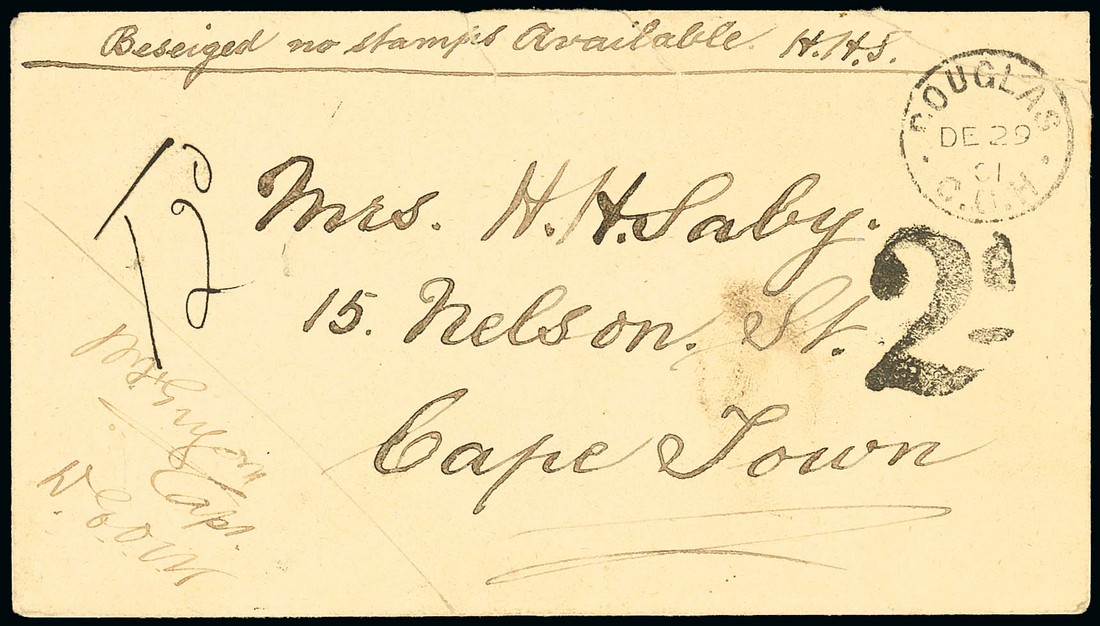 Beseiged no stamps Available. H.H.S.
DOUGLAS
DE 29
01
C.G.H
Mrs. H. H. Saby.
2d
15. Nelson. St.
Cape Town
Capt